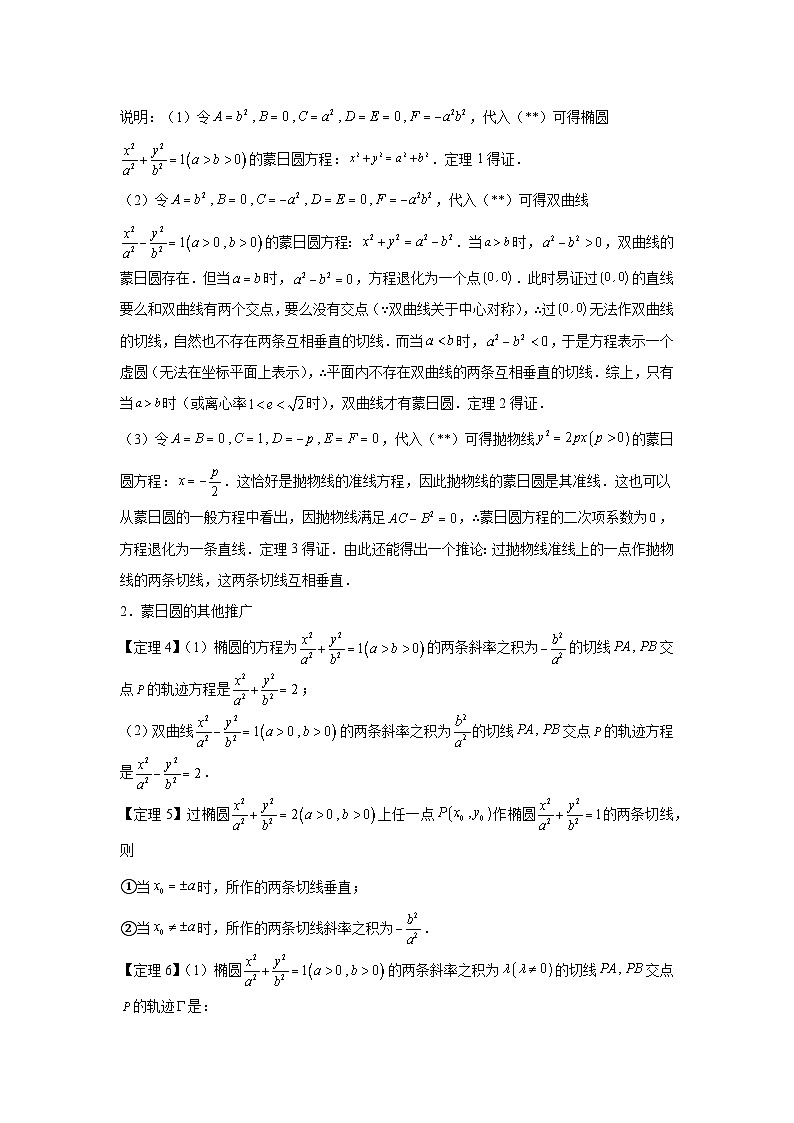 说明:(1)令A = b² , B = 0 , C = a² , D = E = 0 , F = −a²b²,代入(**)可得椭圆
x²/a² + y²/b² = 1(a > b > 0)的蒙日圆方程:x² + y² = a² + b².定理 1 得证.
(2)令A = b² , B = 0 , C = −a² , D = E = 0 , F = −a²b²,代入(**)可得双曲线
x²/a² − y²/b² = 1(a > 0 , b > 0)的蒙日圆方程:x² + y² = a² − b².当a > b时,a² − b² > 0,双曲线的
蒙日圆存在.但当a = b时,a² − b² = 0,方程退化为一个点(0 , 0).此时易证过(0 , 0)的直线
要么和双曲线有两个交点,要么没有交点(∵双曲线关于中心对称),∴过(0 , 0)无法作双曲线
的切线,自然也不存在两条互相垂直的切线.而当a < b时,a² − b² < 0,于是方程表示一个
虚圆(无法在坐标平面上表示),∴平面内不存在双曲线的两条互相垂直的切线.综上,只有
当a > b时(或离心率1 < e < √2时),双曲线才有蒙日圆.定理 2 得证.
(3)令A = B = 0 , C = 1 , D = −p , E = F = 0,代入(**)可得抛物线y² = 2px(p > 0)的蒙日
圆方程:x = −p/2.这恰好是抛物线的准线方程,因此抛物线的蒙日圆是其准线.这也可以
从蒙日圆的一般方程中看出,因抛物线满足AC − B² = 0,∴蒙日圆方程的二次项系数为0,
方程退化为一条直线.定理 3 得证.由此还能得出一个推论:过抛物线准线上的一点作抛物
线的两条切线,这两条切线互相垂直.
2.蒙日圆的其他推广
【定理 4】(1)椭圆的方程为x²/a² + y²/b² = 1(a > b > 0)的两条斜率之积为−b²/a²的切线PA , PB交
点P的轨迹方程是x²/a² + y²/b² = 2;
(2)双曲线x²/a² − y²/b² = 1(a > 0 , b > 0)的两条斜率之积为b²/a²的切线PA , PB交点P的轨迹方程
是x²/a² − y²/b² = 2.
【定理 5】过椭圆x²/a² + y²/b² = 2(a > 0 , b > 0)上任一点P(x₀ , y₀)作椭圆x²/a² + y²/b² = 1的两条切线,
则
①当x₀ = ±a时,所作的两条切线垂直;
②当x₀ ≠ ±a时,所作的两条切线斜率之积为−b²/a².
【定理 6】(1)椭圆x²/a² + y²/b² = 1(a > 0 , b > 0)的两条斜率之积为λ(λ ≠ 0)的切线PA , PB交点
P的轨迹Γ是: